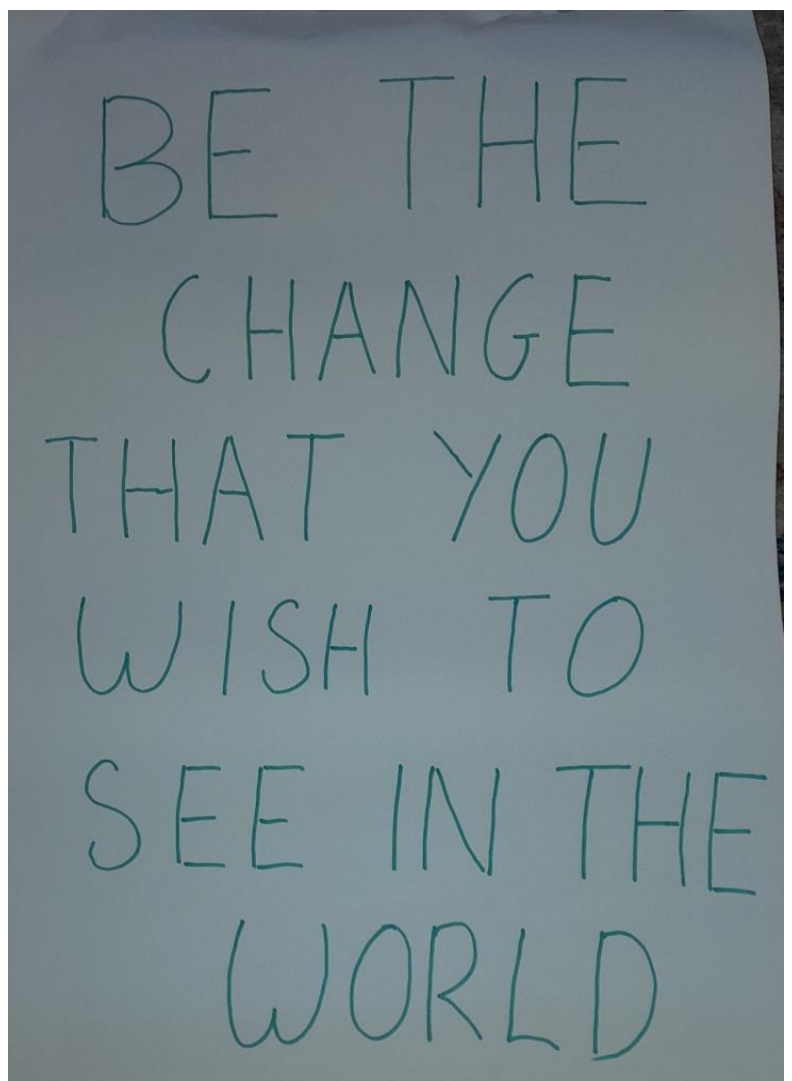 BE THE
CHANGE
THAT YOU
WISH TO
SEE IN THE
WORLD